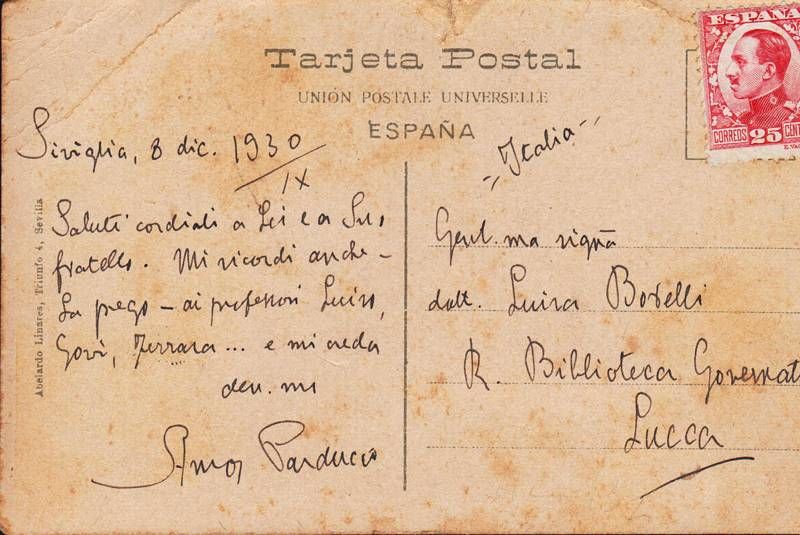 Tarjeta Postal
UNIÓN POSTALE UNIVERSELLE
ESPAÑA
ESPAÑA
CORREOS 25 CENT
Siviglia, 8 dic. 1930
IX
Saluti cordiali a Lei e a Suo
fratello. Mi ricordi anche -
La prego - ai professori
Ferrara... e mi creda
dev. mo
Amos Parducci
Abelardo Linares, Triunfo 4, Sevilla
- Italia -
Gent.ma sig.na
dott. Luisa Borelli
R. Biblioteca Governat
Lucca